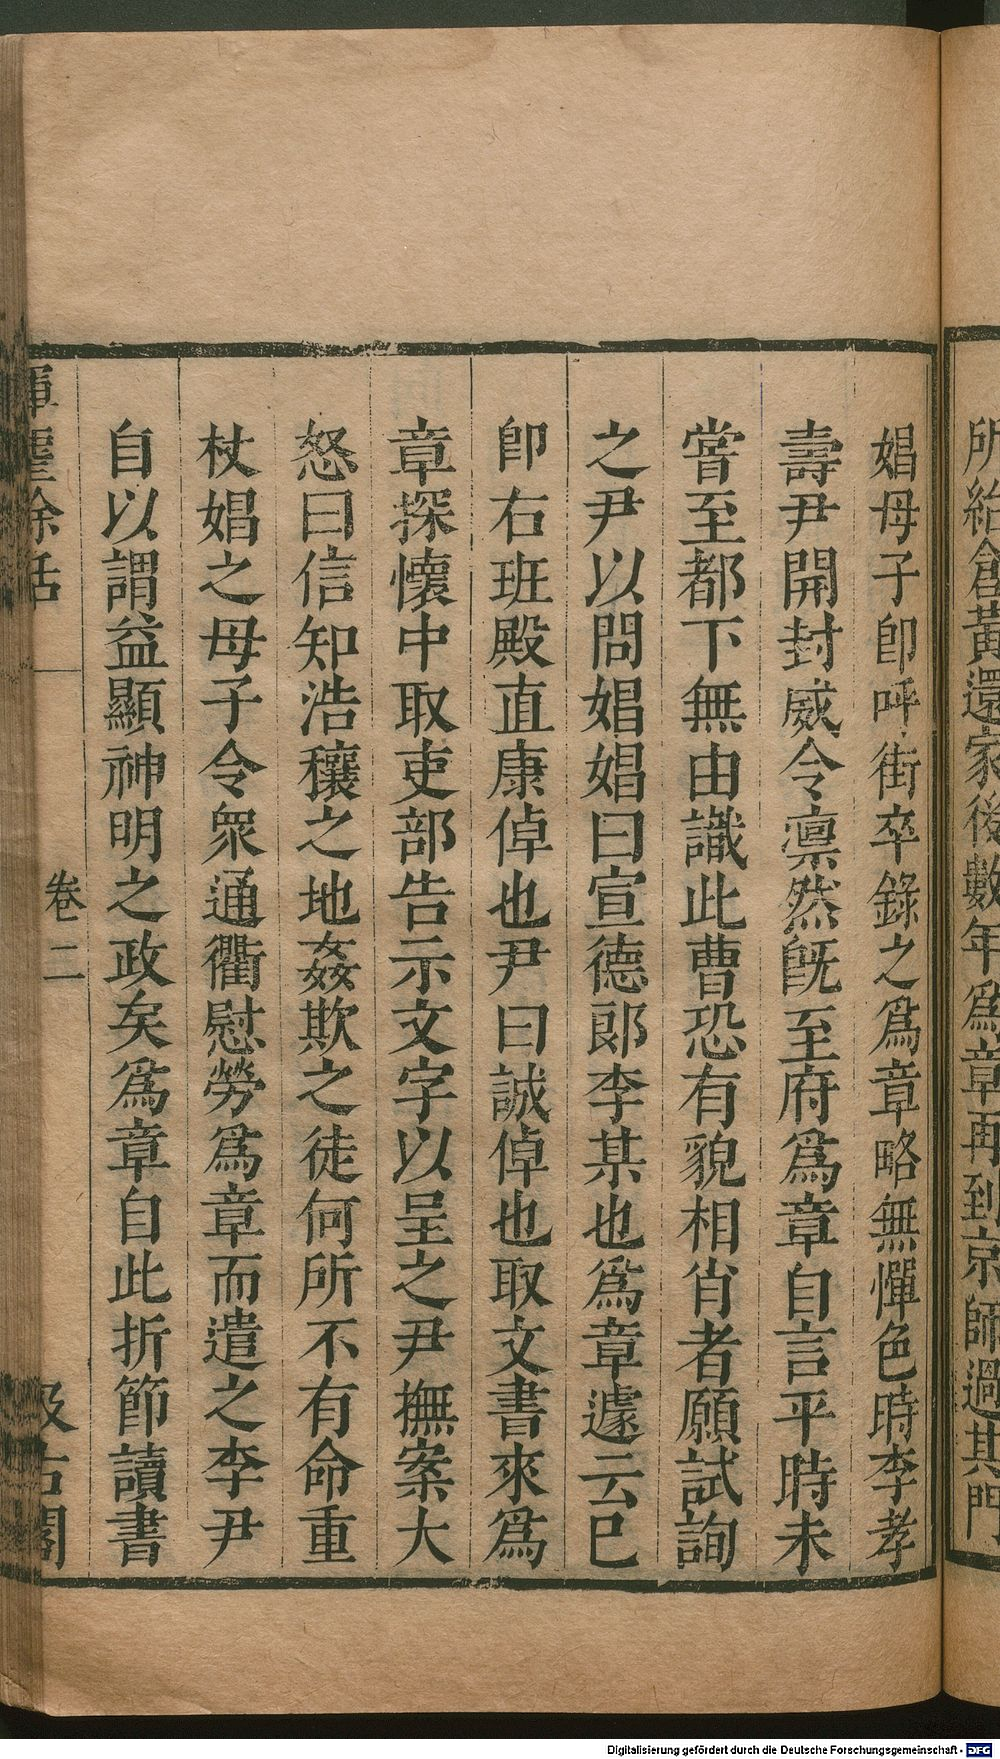 所紿創黃還家後數年爲章再到京師過其門
娼母子卽呼街卒錄之爲章略無憚色時李孝
壽尹開封威令凛然旣至府爲章自言平時未
嘗至都下無由識此曹恐有貌相肖者願試詢
之尹以問娼娼曰宣德郎李某也爲章遽云已
卽右班殿直康倬也尹曰誠倬也取文書來爲
章探懷中取吏部告示文字以呈之尹撫案大
怒曰信知浩穰之地姦欺之徒何所不有命重
杖娼之母子令衆通衢慰勞爲章而遣之李尹
自以謂益顯神明之政矣爲章自此折節讀書
揮麈餘話
卷二
汲古閣
Digitalisierung gefördert durch die Deutsche Forschungsgemeinschaft - DFG